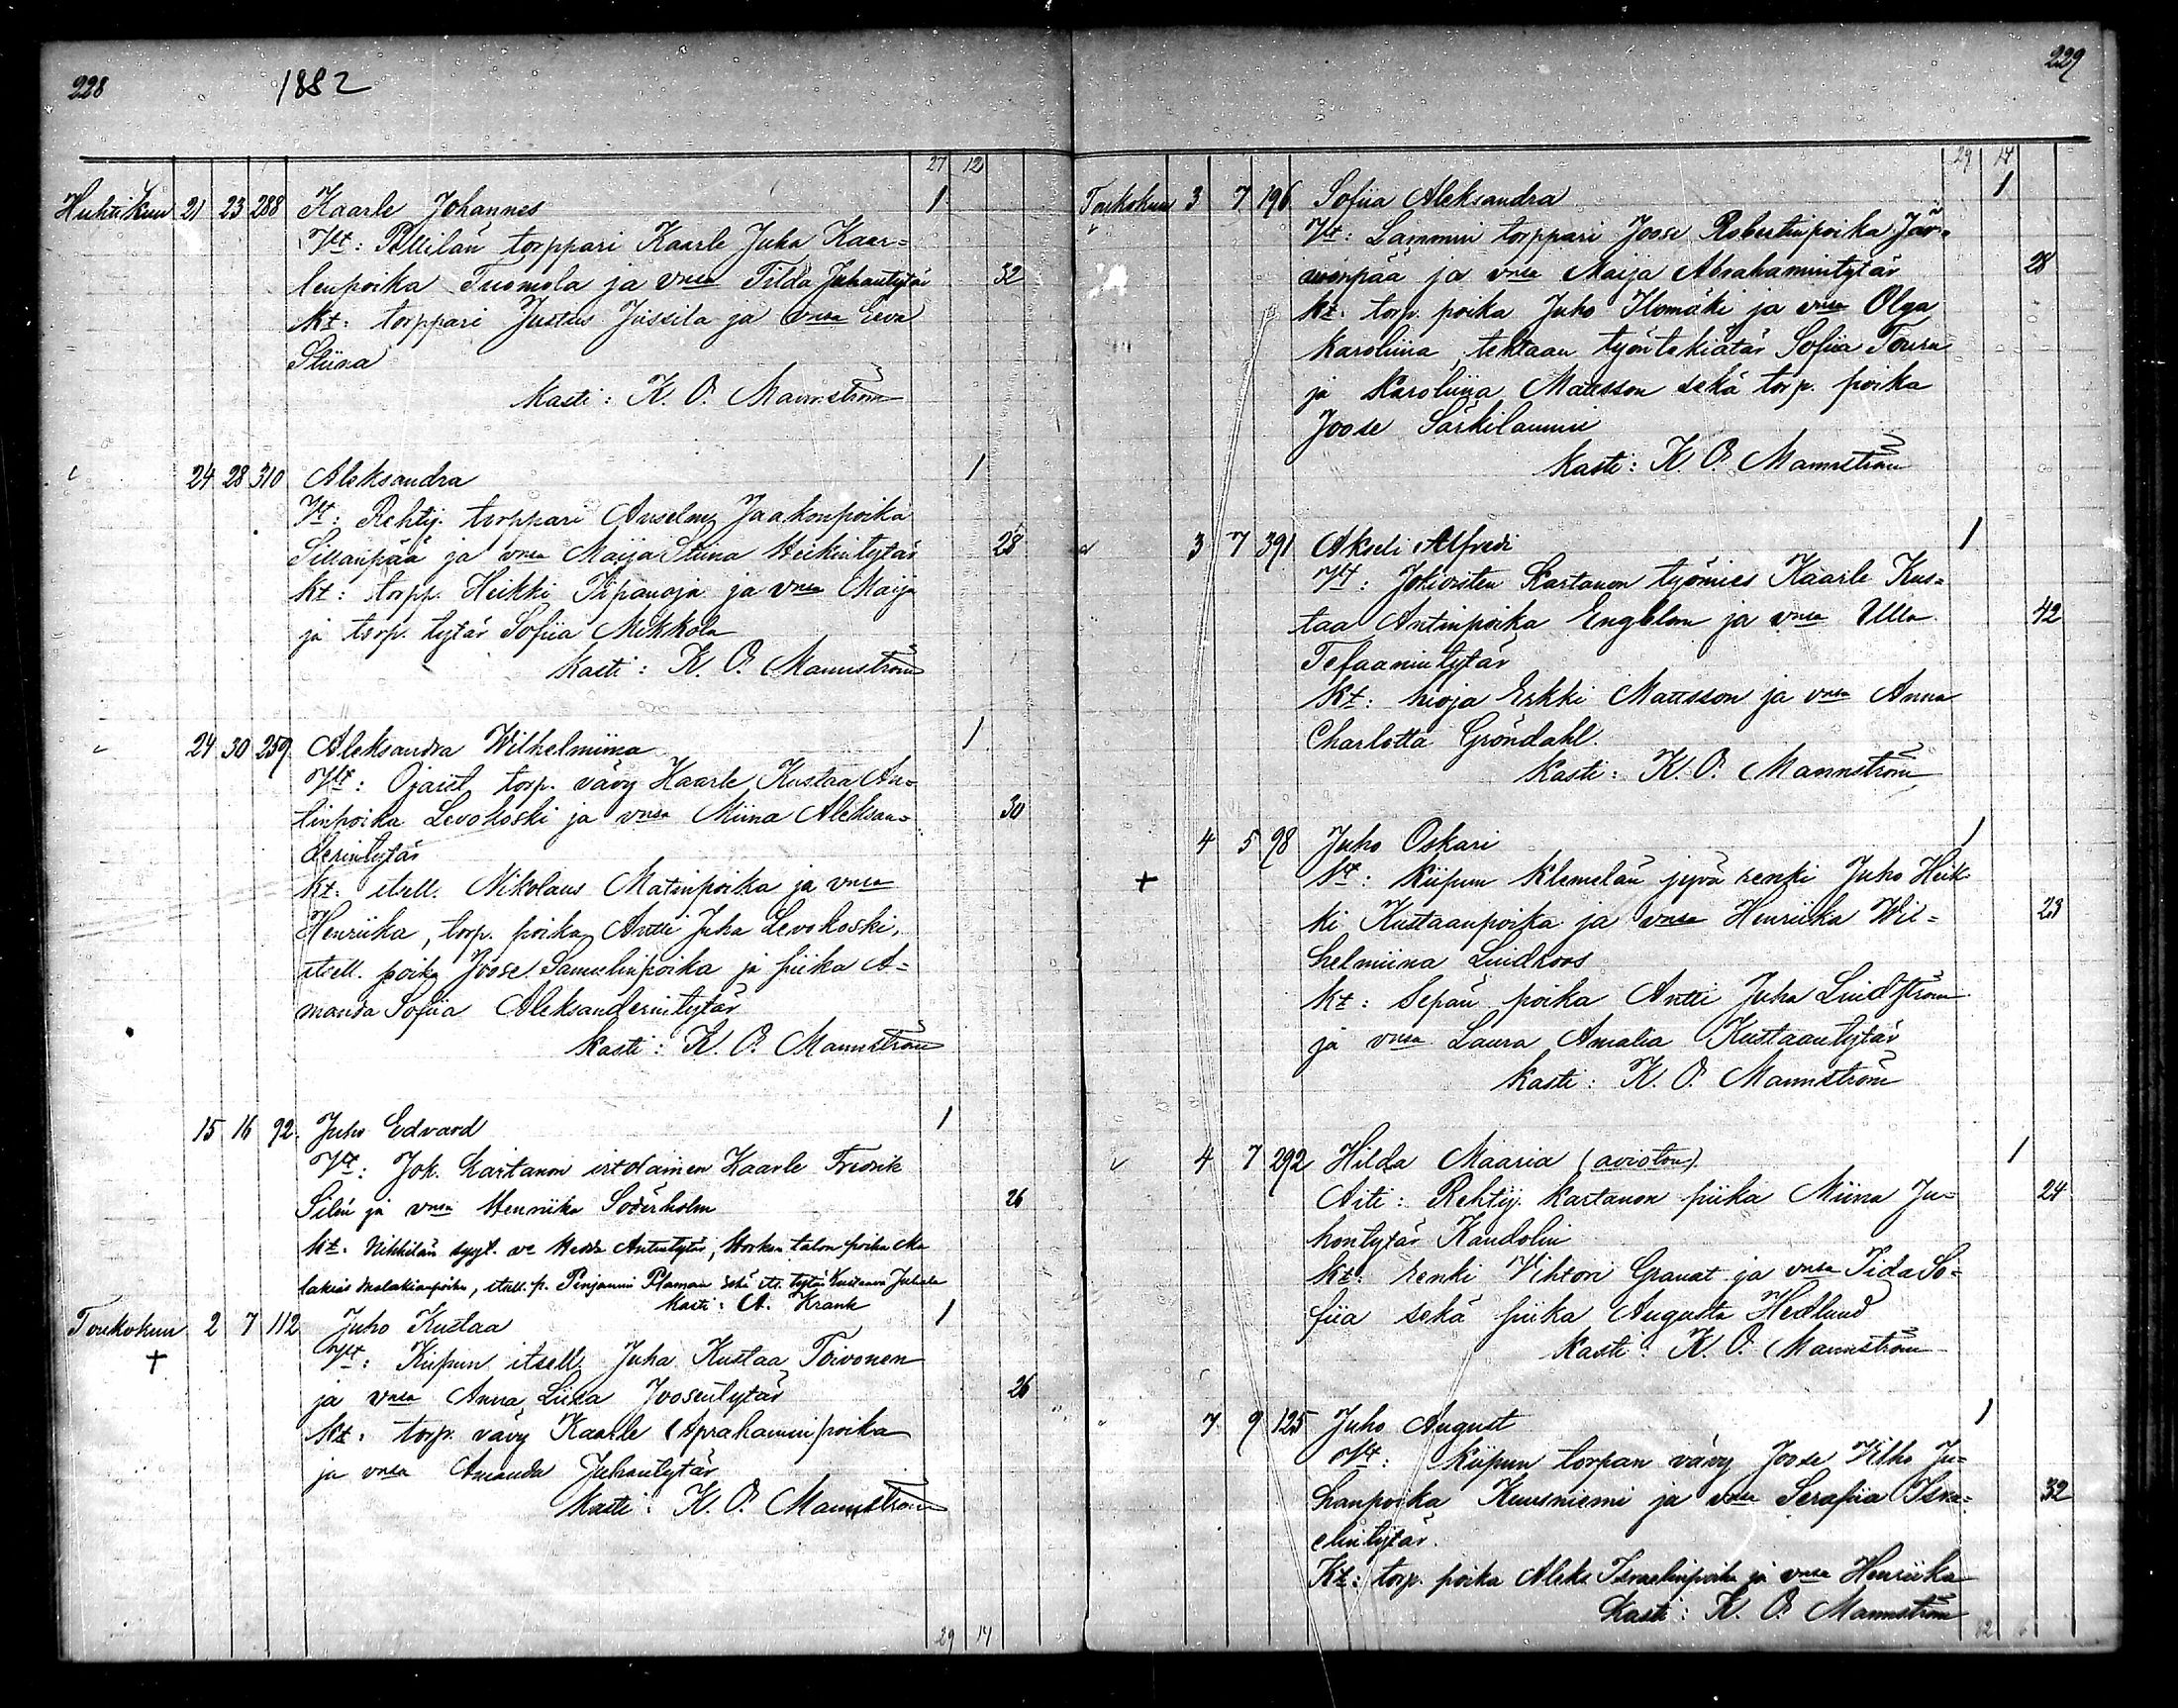 228
1882
27 12
Huhtikuu 21 23 288 Kaarle Johannes 1
Vt: torppari Kaarle Juha Kaar=
lenpoika Tuomola ja vnsa Tilda Juhantytär 32
Kt: torppari Justus Jussila ja vnsa Eeva
Stiina
Kasti: K. O. Mannström
24 28 310 Aleksandra 1
Vt: Rehtij. torppari Anselm Jaakonpoika
Sillanpää ja vnsa Maija Stiina Heikintytär 28
Kt: torpp. Heikki ja vnsa Maija
ja torp. tytär Sofiia Mikkola
Kasti: K. O. Mannström
24 30 259 Aleksandra Wilhelmiina 1
Vt: Ojaist. torp. vävy Kaarle Kustaa An=
tinpoika Levokoski ja vnsa Miina Aleksan= 30
derintytär
Kt: itsell. Nikolaus Matinpoika ja vnsa
Henriika, torp. poika Antti Juha Levokoski,
itsell. poika Joose Samuelinpoika ja piika A=
manda Sofiia Aleksanderintytär
Kasti: K. O. Mannström
15 16 92. Juho Edvard 1
Vt: Jok. Kartanon irtolainen Kaarle Fredrik
Silén ja vnsa Henriika Söderholm 26
Kt. Nikkilän Antintytär, talon poika Ma
lakias Malakianpoika, itsell. p. Pinjammi sekä its. tytär Kustaava Juhala
Kasti: A. Krank
Toukokuu 2 7 112 Juho Kustaa 1
+ Vt: Kiipun itsell. Juha Kustaa Toivonen
ja vnsa Anna Liisa Joosentytär 26
Kt: torp. vävy Kaarle Aprahaminpoika
ja vnsa Amanda Juhantytär
Kasti: K. O. Mannström
29 14
229
29 14
Toukokuu 3 7 196 Sofiia Aleksandra 1
Vt: Lammin torppari Joose Robertinpoika Jär=
venpää ja vnsa Maija Abrahamintytär 28
Kt: torp. poika Juho Ilomäki ja vnsa Olga
Karoliina, tehtaan työntekiätär Sofiia Toura
ja Karoliina Mattsson sekä torp. poika
Joose Särkilammi
Kasti: K. O. Mannström
3 7 391 Akseli Alfredi 1
Vt: Jokioisten Kartanon työmies Kaarle Kus=
taa Antinpoika Engblom ja vnsa Ulla 42
Tefaanintytär
Kt: hioja Erkki Mattsson ja vnsa Anna
Charlotta Gröndahl.
Kasti: K. O. Mannström
4 5 98 Juho Oskari 1
+ Vt: Kiipun Klemelän jyvä renki Juho Heik
ki Kustaanpoika ja vnsa Henriika Wil= 23
helmiina Lindroos
Kt: Sepän poika Antti Juha Lindström
ja vnsa Laura Amalia Kustaantytär
Kasti: K. O. Mannström
4 7 292 Hilda Maaria (avioton) 1
Äiti: Rehtij. Kartanon piika Miina Ju= 24
hontytär Kandolin
Kt: renki Vihtori Granat ja vnsa Iida So=
fiia sekä piika Augusta Hedlund
Kasti: K. O. Mannström
" 7 9 125 Juho August 1
Vt: Kiipun torpan vävy Joose Vilho Ju=
hanpoika Kuusniemi ja vnsa Serafiia Isra= 32
elintytär.
Kt: torp. poika Aleks Israelinpoika ja vnsa Henriika
Kasti: K. O. Mannström